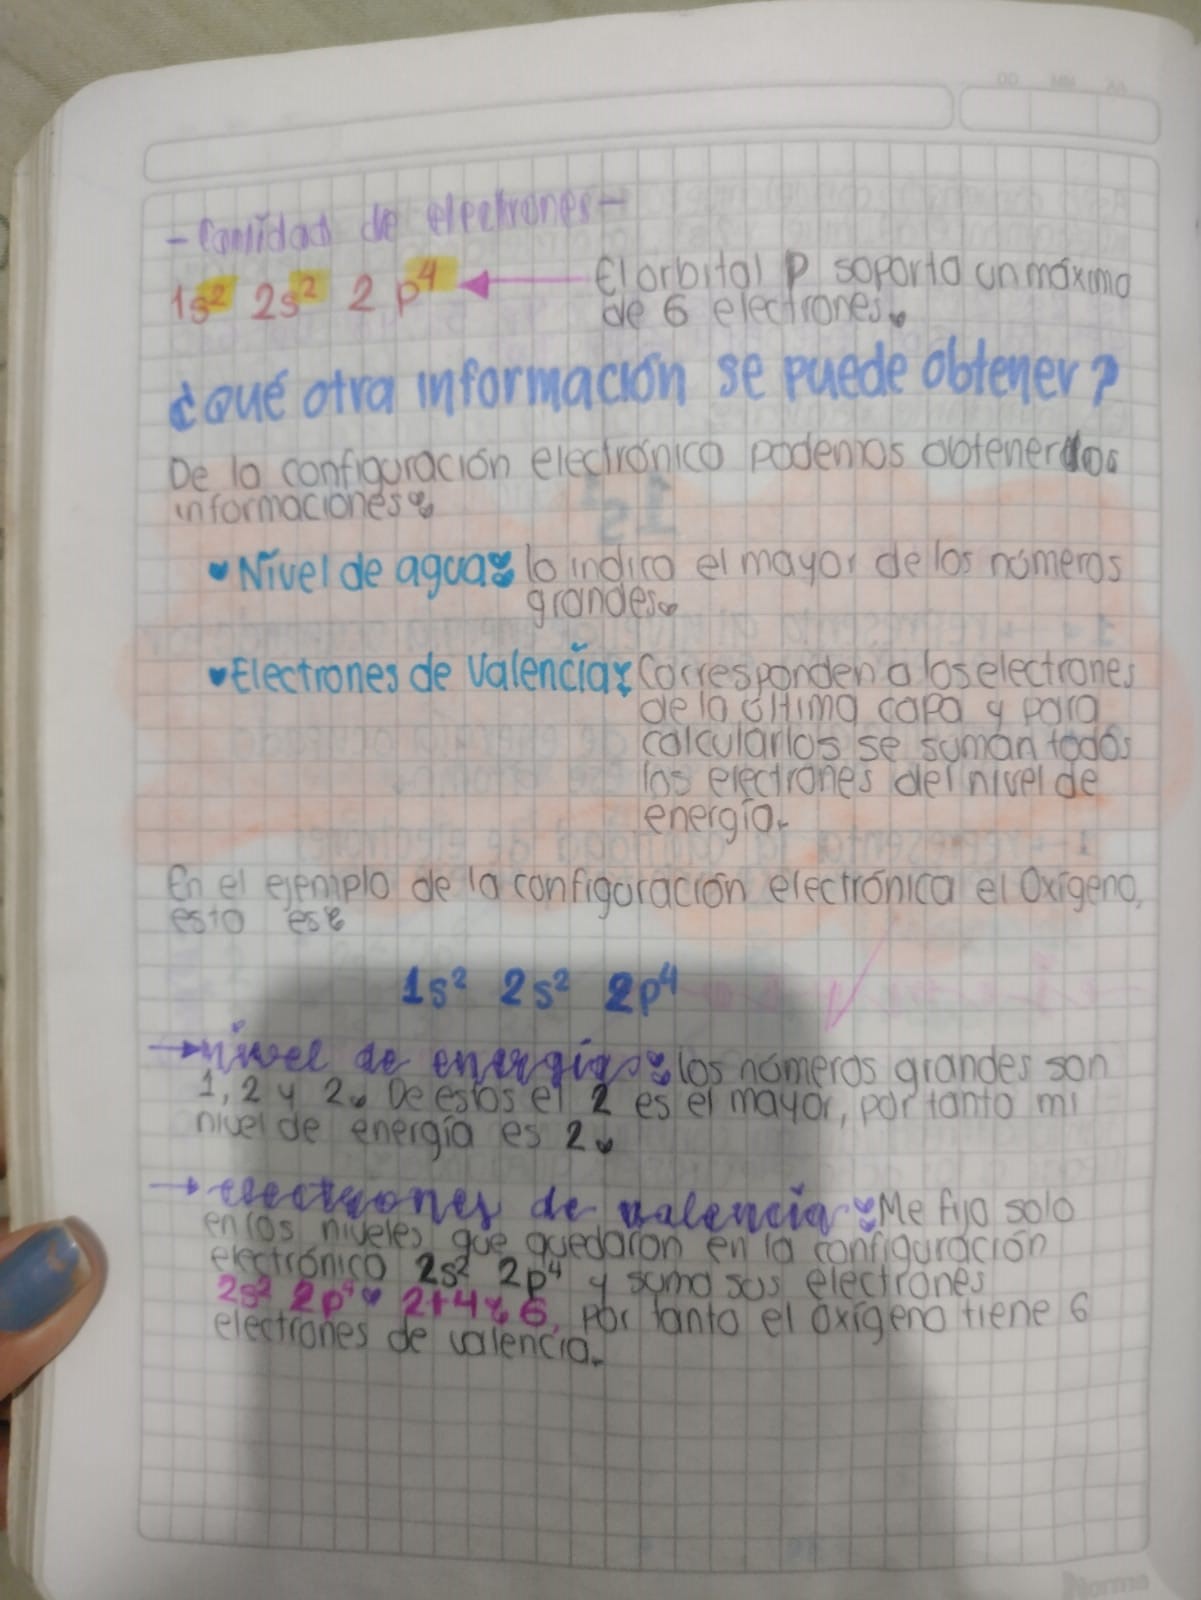 DD MM AA
- Cantidad de electrones -
1s² 2s² 2 p⁴ ← El orbital P soporta un máximo
de 6 electrones.
¿Qué otra información se puede obtener?
De la configuración electrónica podemos obtener dos
informaciones:
Nivel de agua: lo indica el mayor de los números
grandes.
Electrones de Valencia: Corresponden a los electrones
de la última capa y para
calcularlos se suman todos
los electrones del nivel de
energía.
En el ejemplo de la configuración electrónica el Oxígeno,
esto es:
1s² 2s² 2p⁴
→ nivel de energía: los números grandes son
1, 2 y 2. De estos el 2 es el mayor, por tanto mi
nivel de energía es 2.
→ electrones de valencia: Me fijo solo
en los niveles que quedaron en la configuración
electrónica 2s² 2p⁴ y sumo sus electrones
2s² 2p⁴ 2+4: 6, por tanto el oxígeno tiene 6
electrones de valencia.
Norma